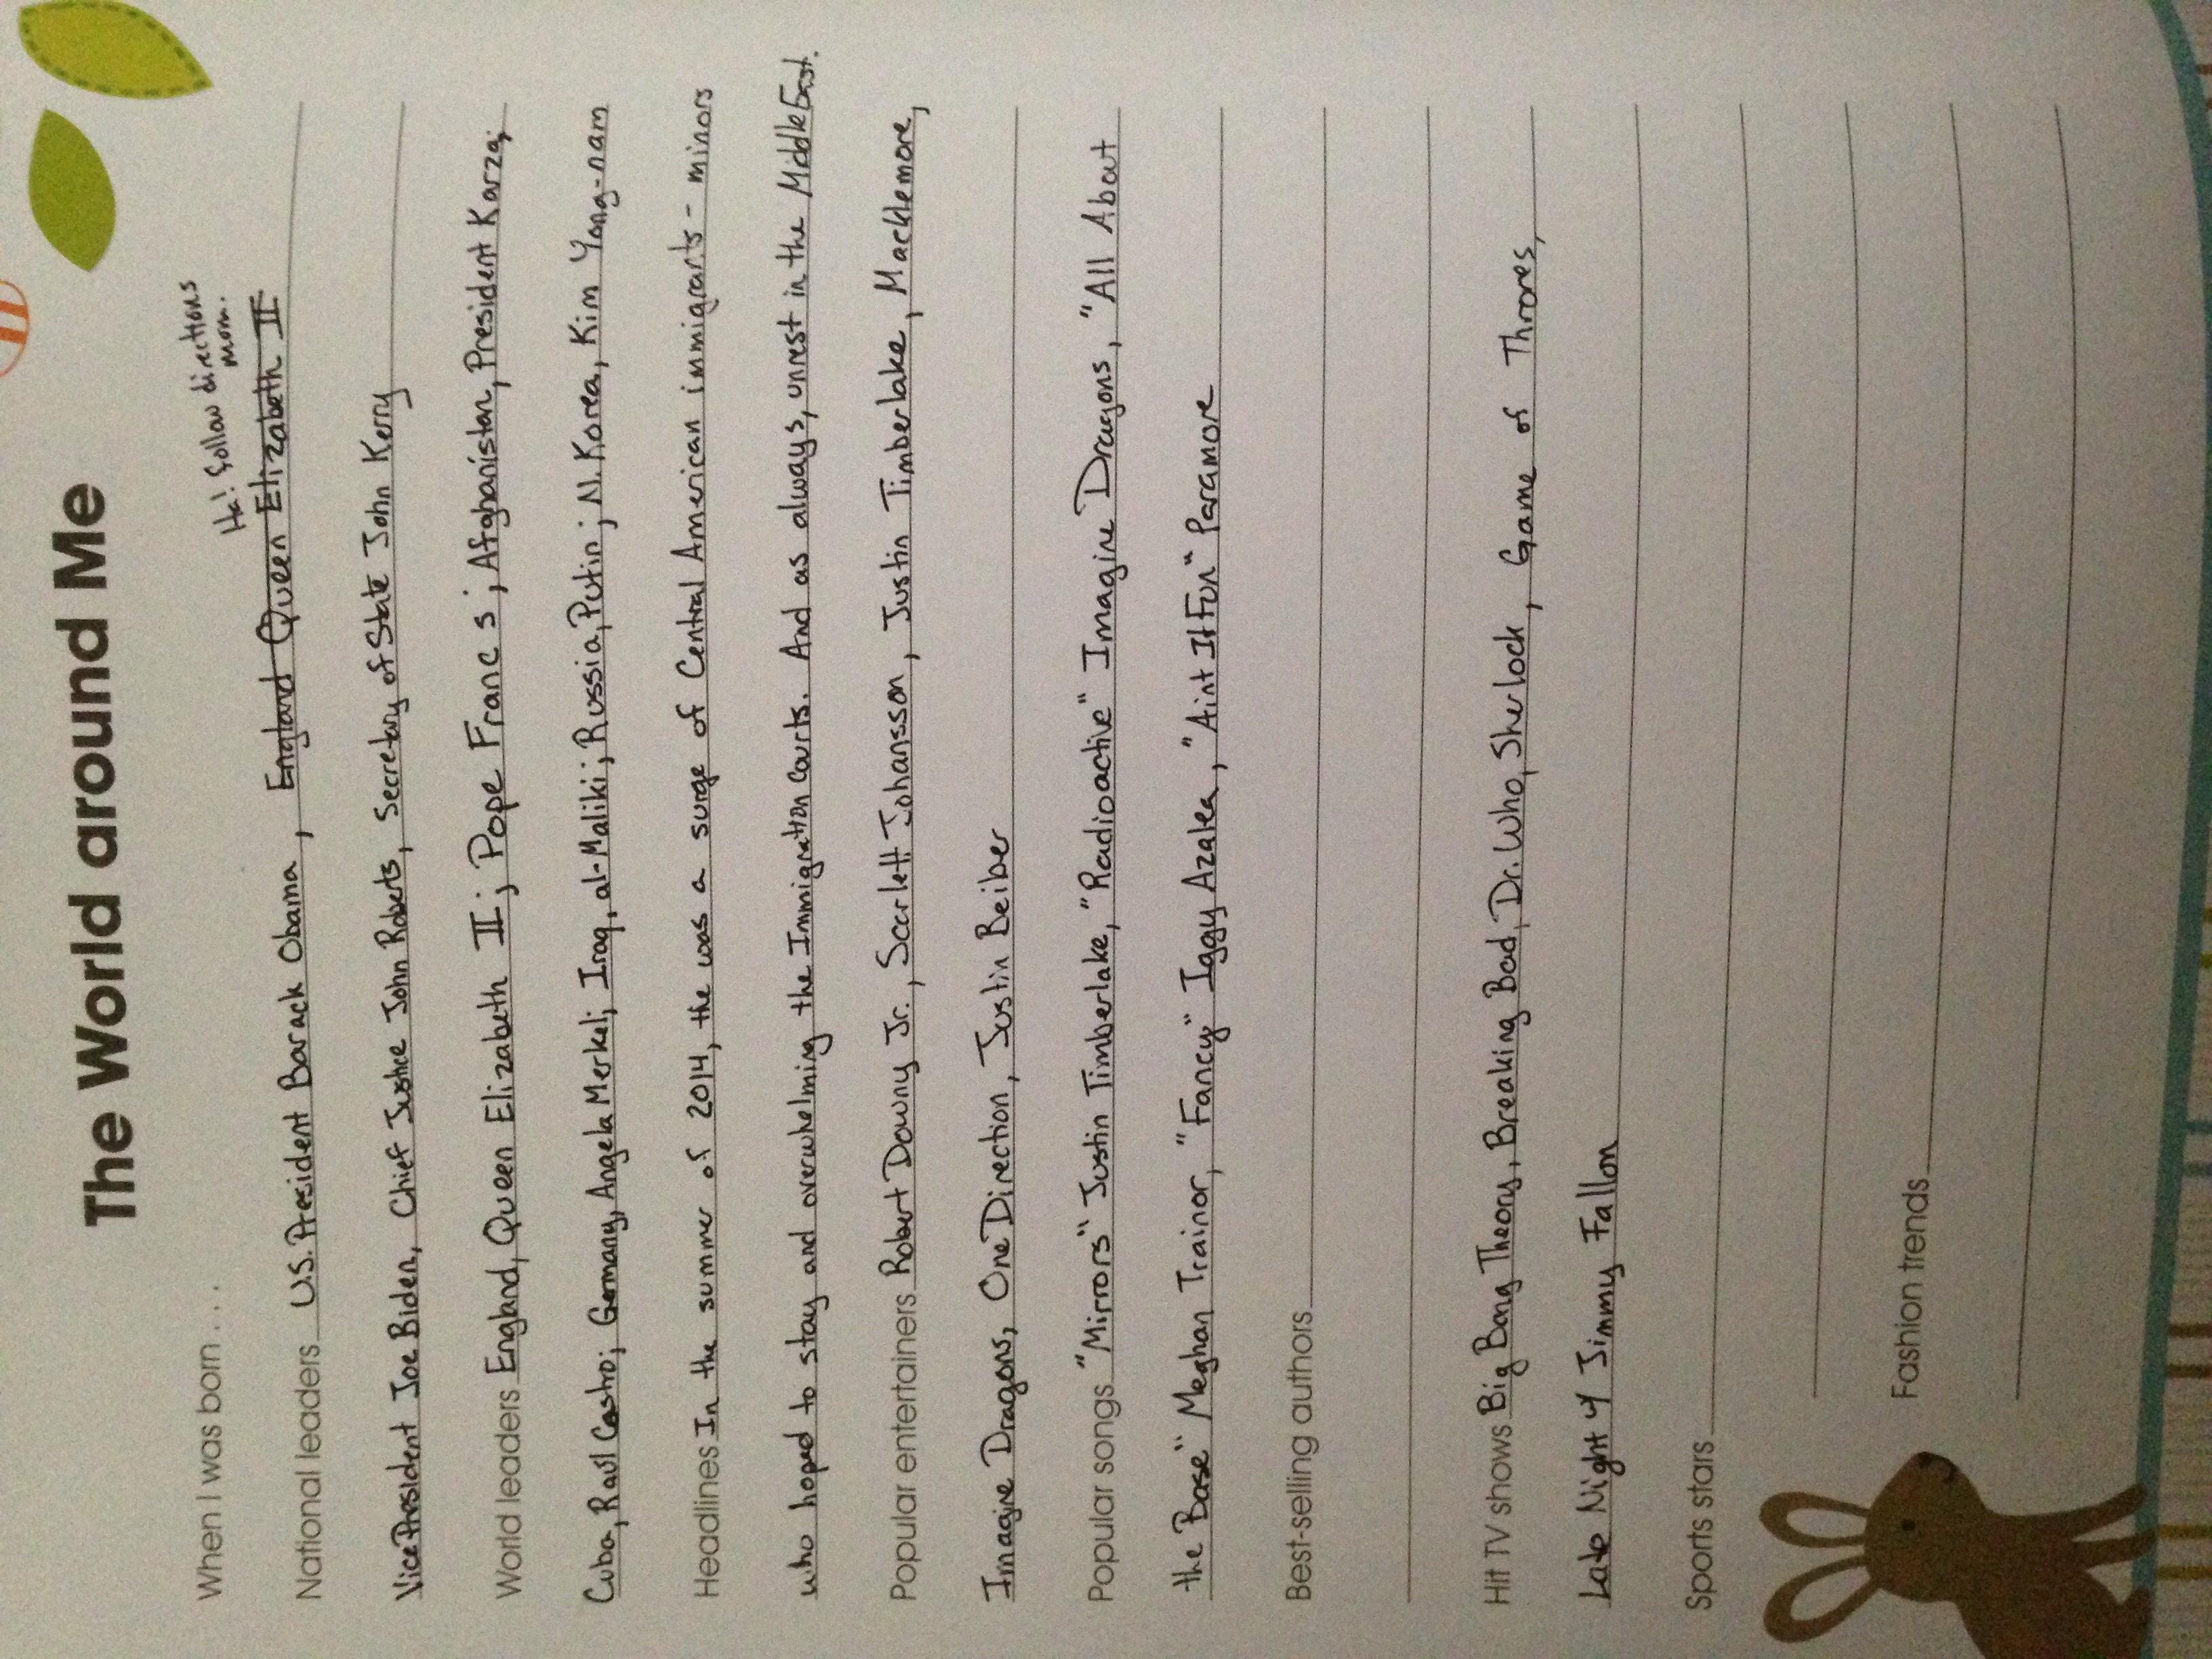 The World around Me
When I was born . . .
Ha! follow directions
mom.
National leaders U.S. President Barack Obama, England Queen Elizabeth II
Vice President Joe Biden, Chief Justice John Roberts, Secretary of State John Kerry
World leaders England, Queen Elizabeth II; Pope Francis; Afghanistan, President Karzai
Cuba, Raúl Castro; Germany, Angela Merkel; Iraq, al-Maliki; Russia, Putin; N. Korea, Kim Yong-nam
Headlines In the summer of 2014, the was a surge of Central American immigrants - minors
who hoped to stay and overwhelming the Immigration Courts. And as always, unrest in the Middle East.
Popular entertainers Robert Downy Jr., Scarlett Johansson, Justin Timberlake, Macklemore,
Imagine Dragons, One Direction, Justin Beiber
Popular songs "Mirrors" Justin Timberlake, "Radioactive" Imagine Dragons, "All About
the Base" Meghan Trainor, "Fancy" Iggy Azalea, "Aint It Fun" Paramore
Best-selling authors
Hit TV shows Big Bang Theory, Breaking Bad, Dr. Who, Sherlock, Game of Thrones,
Late Night w/ Jimmy Fallon
Sports stars
Fashion trends